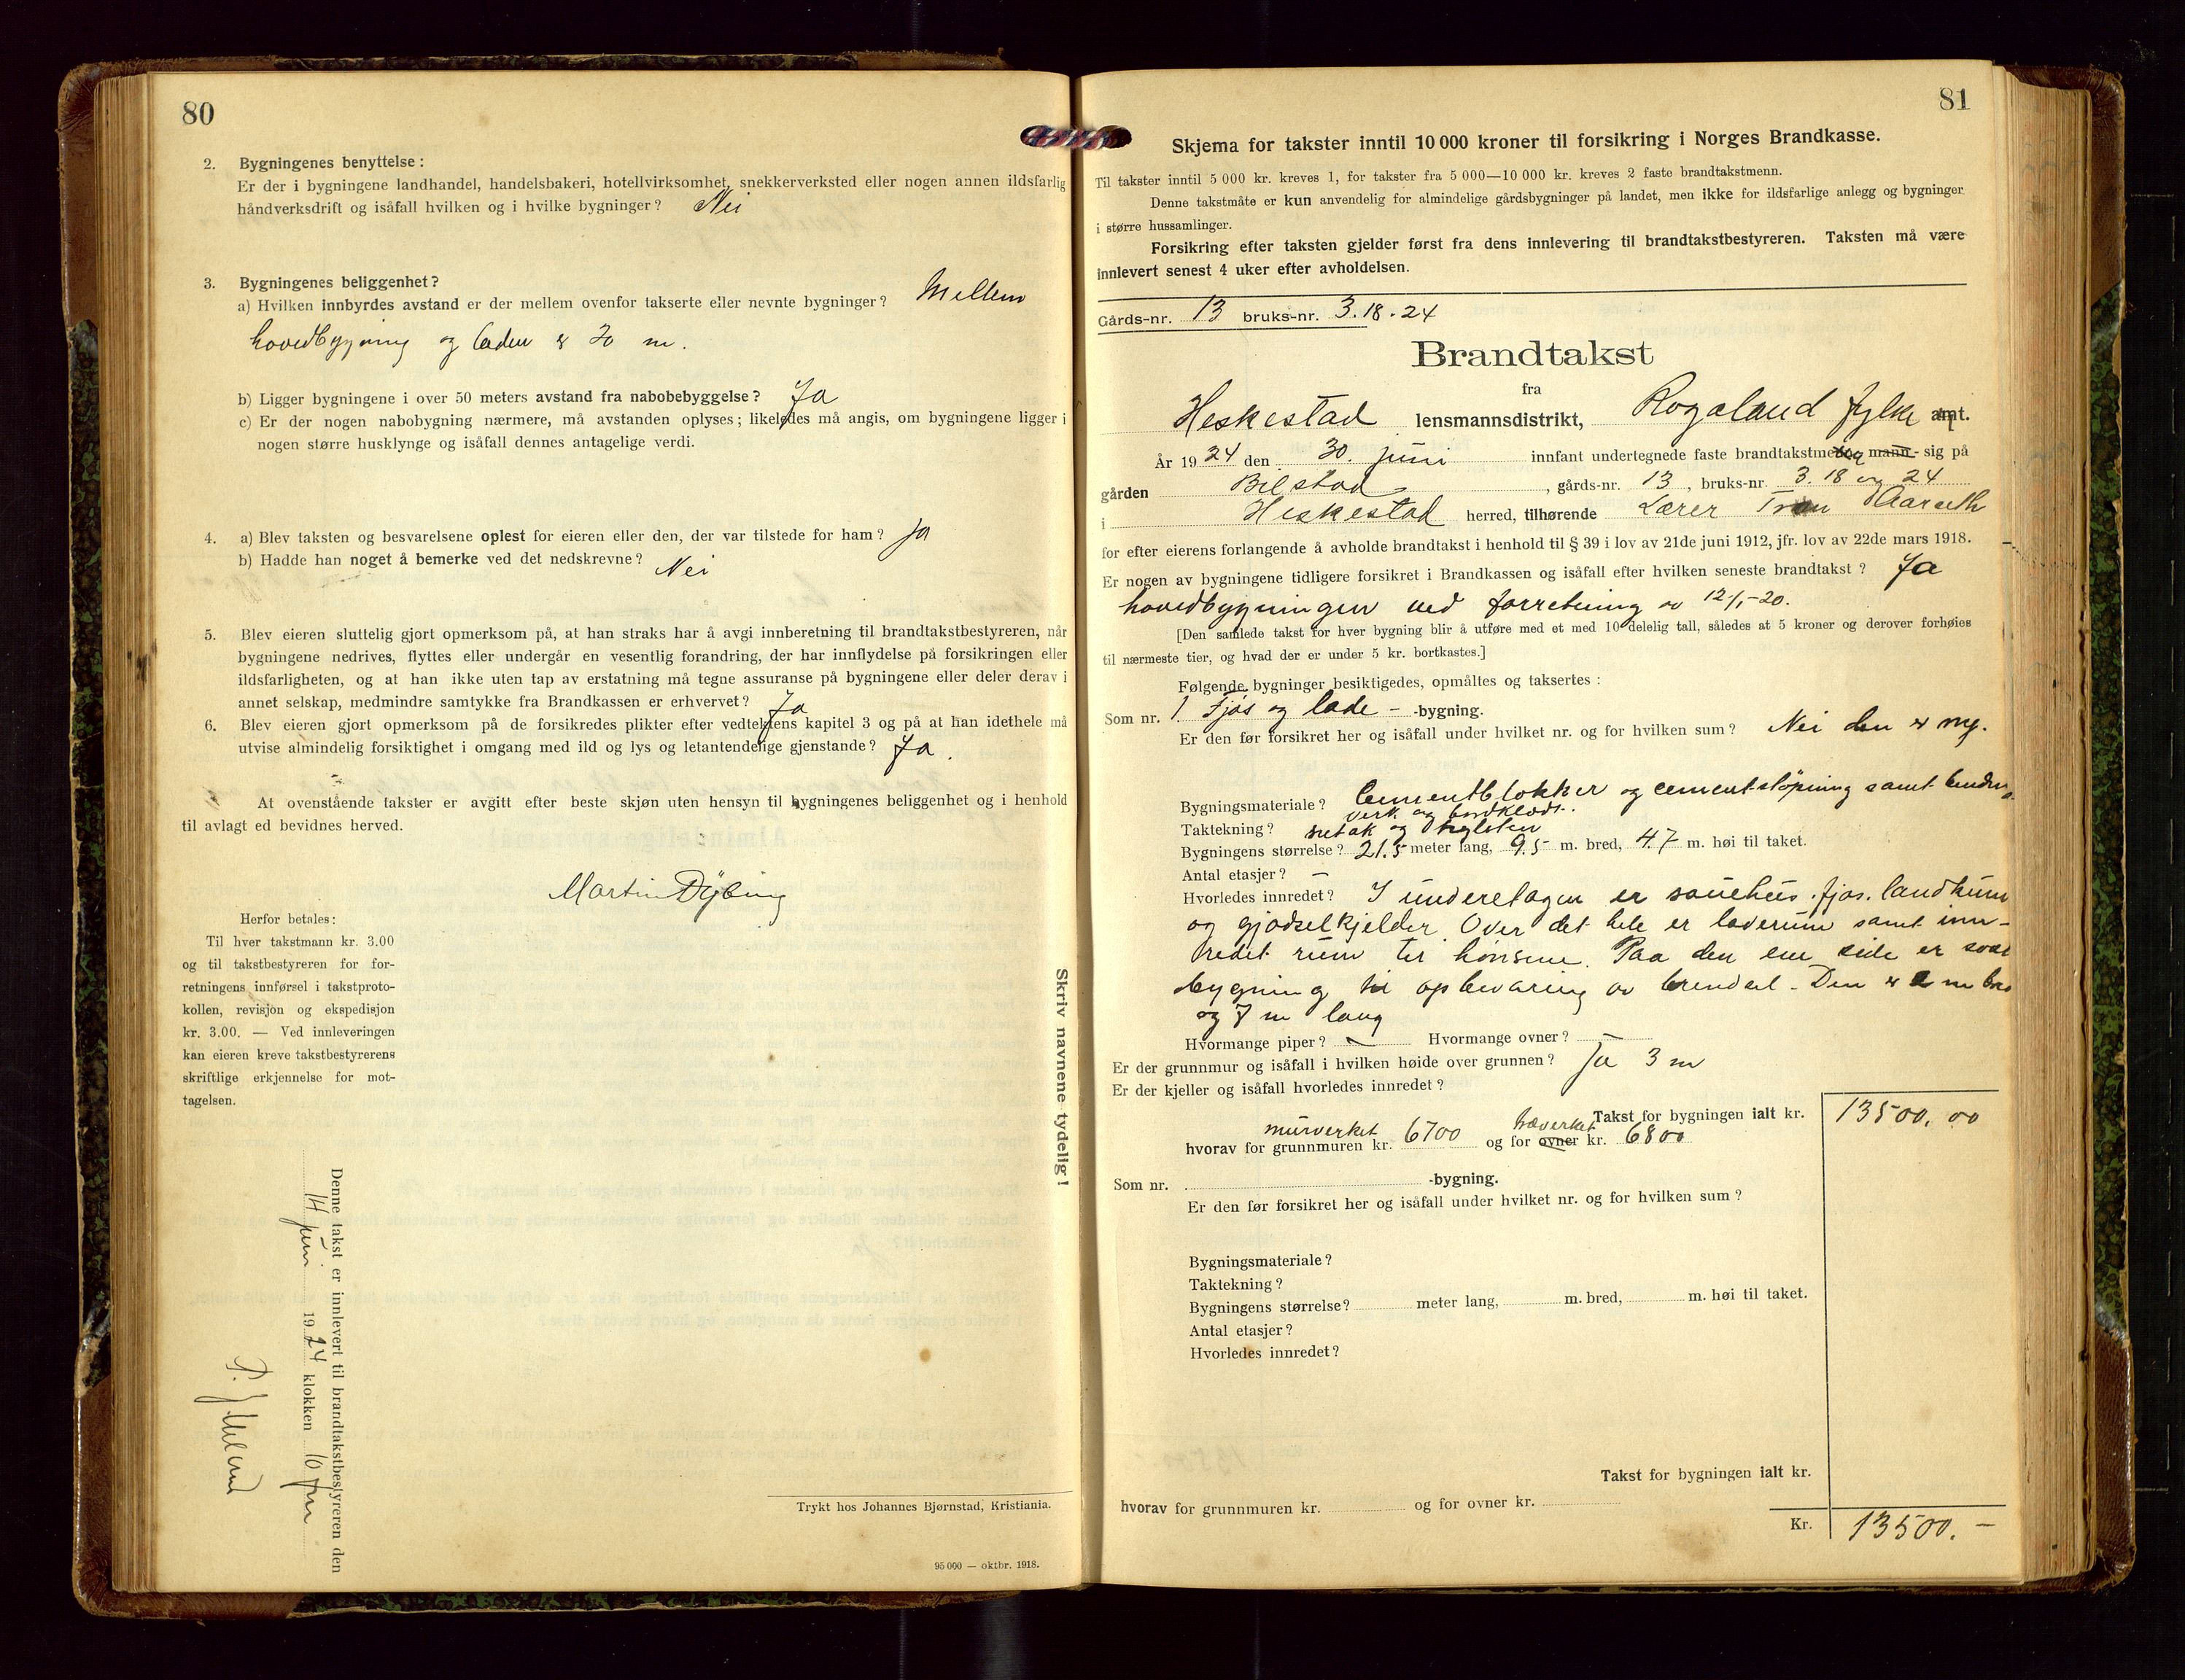 80
2. Bygningenes benyttelse:
Er der i bygningene landhandel, handelsbakeri, hotellvirksomhet, snekkerverksted eller nogen annen ildsfarlig
håndverksdrift og isåfall hvilken og i hvilke bygninger? Nei
3. Bygningenes beliggenhet?
a) Hvilken innbyrdes avstand er der mellem ovenfor takserte eller nevnte bygninger? Mellem
hovedbygning og laden er 20 m.
b) Ligger bygningene i over 50 meters avstand fra nabobebyggelse? Ja
c) Er der nogen nabobygning nærmere, må avstanden oplyses; likeledes må angis, om bygningene ligger i
nogen større husklynge og isåfall dennes antagelige verdi.
4. a) Blev taksten og besvarelsene oplest for eieren eller den, der var tilstede for ham? Ja
b) Hadde han noget å bemerke ved det nedskrevne? Nei
5. Blev eieren sluttelig gjort opmerksom på, at han straks har å avgi innberetning til brandtakstbestyreren, når
bygningene nedrives, flyttes eller undergår en vesentlig forandring, der har innflydelse på forsikringen eller
ildsfarligheten, og at han ikke uten tap av erstatning må tegne assuranse på bygningene eller deler derav i
annet selskap, medmindre samtykke fra Brandkassen er erhvervet? Ja
6. Blev eieren gjort opmerksom på de forsikredes plikter efter vedtektens kapitel 3 og på at han idethele må
utvise almindelig forsiktighet i omgang med ild og lys og letantendelige gjenstande? Ja.
At ovenstående takster er avgitt efter beste skjøn uten hensyn til bygningenes beliggenhet og i henhold
til avlagt ed bevidnes herved.
Martin Dybing
Herfor betales:
Til hver takstmann kr. 3.00
og til takstbestyreren for for-
retningens innførsel i takstproto-
kollen, revisjon og ekspedisjon
kr. 3.00. — Ved innleveringen
kan eieren kreve takstbestyrerens
skriftlige erkjennelse for mot-
tagelsen.
Skriv navnene tydelig!
Denne takst er innlevert til brandtakstbestyreren den
14 juni 1924 klokken 10 fm
Trykt hos Johannes Bjørnstad, Kristiania.
95 000 — oktbr. 1918.
81
Skjema for takster inntil 10 000 kroner til forsikring i Norges Brandkasse.
Til takster inntil 5 000 kr. kreves 1, for takster fra 5 000—10 000 kr. kreves 2 faste brandtakstmenn.
Denne takstmåte er kun anvendelig for almindelige gårdsbygninger på landet, men ikke for ildsfarlige anlegg og bygninger
i større hussamlinger.
Forsikring efter taksten gjelder først fra dens innlevering til brandtakstbestyreren. Taksten må være
innlevert senest 4 uker efter avholdelsen.
Gårds-nr. 13 bruks-nr. 3.18.24
Brandtakst
fra
Heskestad lensmannsdistrikt, Rogaland fylke amt.
År 1924 den 30. juni innfant undertegnede faste brandtakstmenn mann sig på
gården Bilstad, gårds-nr. 13, bruks-nr. 3. 18 og 24
i Heskestad herred, tilhørende Lærer
for efter eierens forlangende å avholde brandtakst i henhold til § 39 i lov av 21de juni 1912, jfr. lov av 22de mars 1918.
Er nogen av bygningene tidligere forsikret i Brandkassen og isåfall efter hvilken seneste brandtakst? Ja
hovedbygningen ved forretning av 12/1-20.
[Den samlede takst for hver bygning blir å utføre med et med 10 delelig tall, således at 5 kroner og derover forhøies
til nærmeste tier, og hvad der er under 5 kr. bortkastes.]
Følgende bygninger besiktigedes, opmåltes og taksertes:
Som nr. 1 Fjøs og lade - -bygning.
Er den før forsikret her og isåfall under hvilket nr. og for hvilken sum? Nei den er ny.
Bygningsmateriale? Cementblokker og cementstøpning samt bindings
verk og bordklædt.
Taktekning? sutak og teglsten
Bygningens størrelse? 21.5 meter lang, 9.5 m. bred, 4.7 m. høi til taket.
Antal etasjer? —
Hvorledes innredet? I underetagen er sauehus. fjøs. landkum
og gjødselkjelder. Over det hele er laderum samt inn-
redet rum til hønsene. Paa den ene side er sval
bygning til opbevaring av brendsel. Den er 2 m bred
og 7 m lang
Hvormange piper? — Hvormange ovner? —
Er der grunnmur og isåfall i hvilken høide over grunnen? Ja 3 m
Er der kjeller og isåfall hvorledes innredet?
Takst for bygningen ialt kr. 13500.00
murverket træverket
hvorav for grunnmuren kr. 6700 og for ovner kr. 6800
Som nr. -bygning.
Er den før forsikret her og isåfall under hvilket nr. og for hvilken sum?
Bygningsmateriale?
Taktekning?
Bygningens størrelse? meter lang, m. bred, m. høi til taket.
Antal etasjer?
Hvorledes innredet?
Takst for bygningen ialt kr.
hvorav for grunnmuren kr. og for ovner kr.
Kr. 13500.—